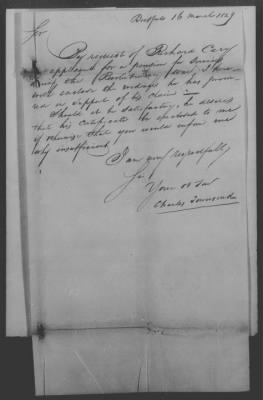 Buffalo 16 March 1829
Sir
By request of Richard Cary
an applicant for a pension for services
during the Revolutionary war, I here
with enclose the evidence he has procu
red in support of his claim
Should it be satisfactory, he desires
that his Certificate be enclosed to me
if otherwise that you would inform me
why insufficient
I am very respectfully
Sir
Your Obt Svt
Charles Townsend